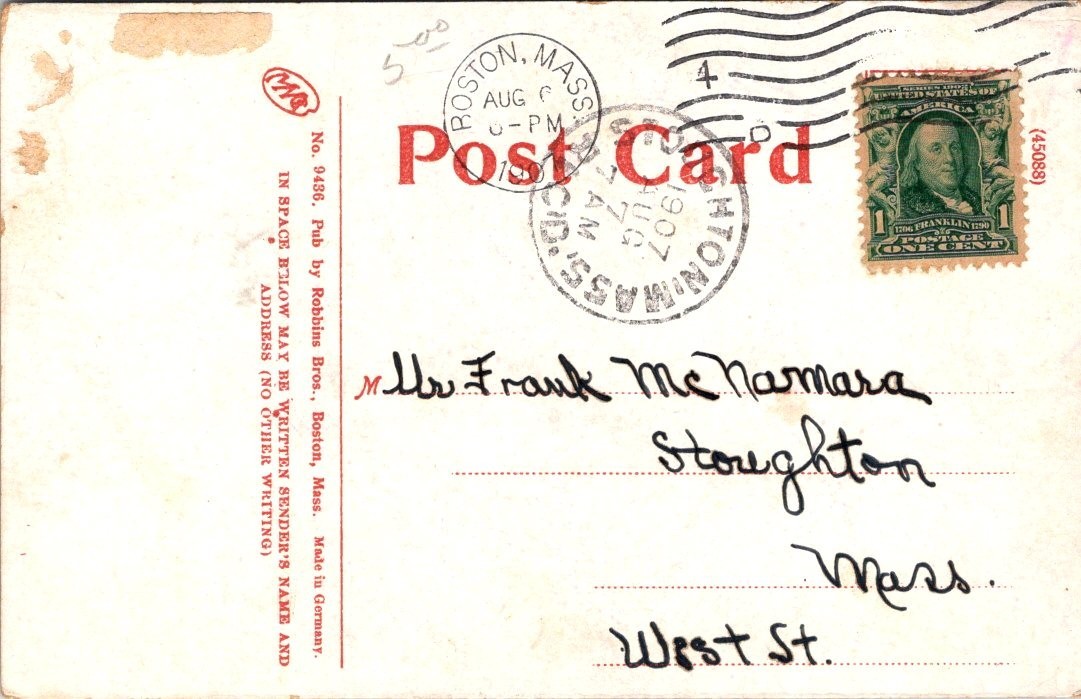 5.00
BOSTON, MASS.
AUG 6
6-PM
1907
4
D
Post Card
STOUGHTON, MASS.
1907
AUG
7
7 AM
REC'D.
SERIES 1902
UNITED STATES OF
AMERICA
1 1
1706 FRANKLIN 1790
POSTAGE
ONE CENT
(45088)
No. 9436. Pub by Robbins Bros., Boston, Mass. Made in Germany.
IN SPACE BELOW MAY BE WRITTEN SENDER'S NAME AND
ADDRESS (NO OTHER WRITING)
M Mr Frank McNamara
Stoughton
Mass.
West St.